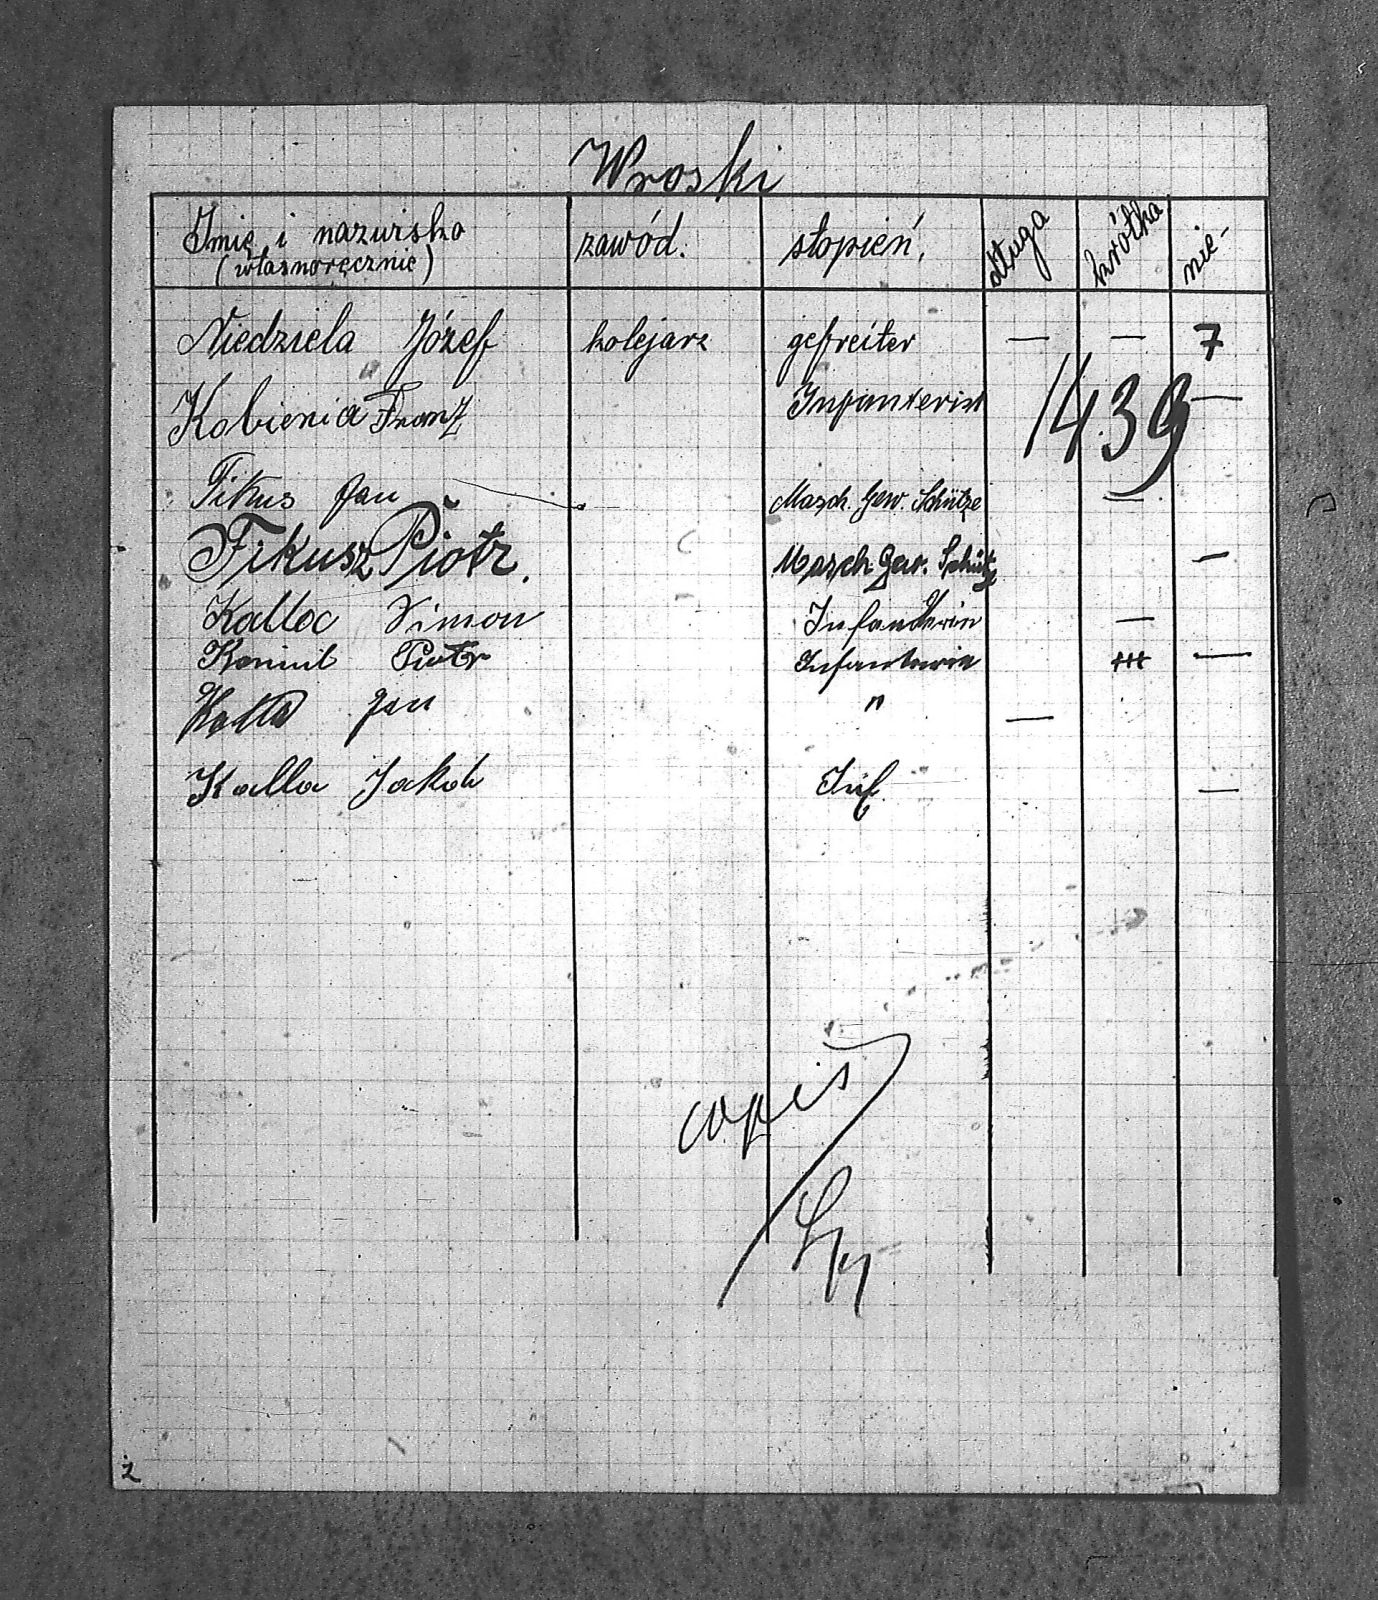 Wroski
Imię i nazwisko zawód. stopień. długa krótka nie-
(własnoręcznie)
Niedziela Józef kolejarz gefreiter — — 7
Kobienia Franz Infanterist 1439 —
Fikus Jan Masch. Gew. Schütze —
Fikusz Piotr. Masch Gew. Schütze —
Kalloc Simon Infanterin —
Piotr Infanterie —
Jan " —
Kalla Jakob Inf. —
copis
2